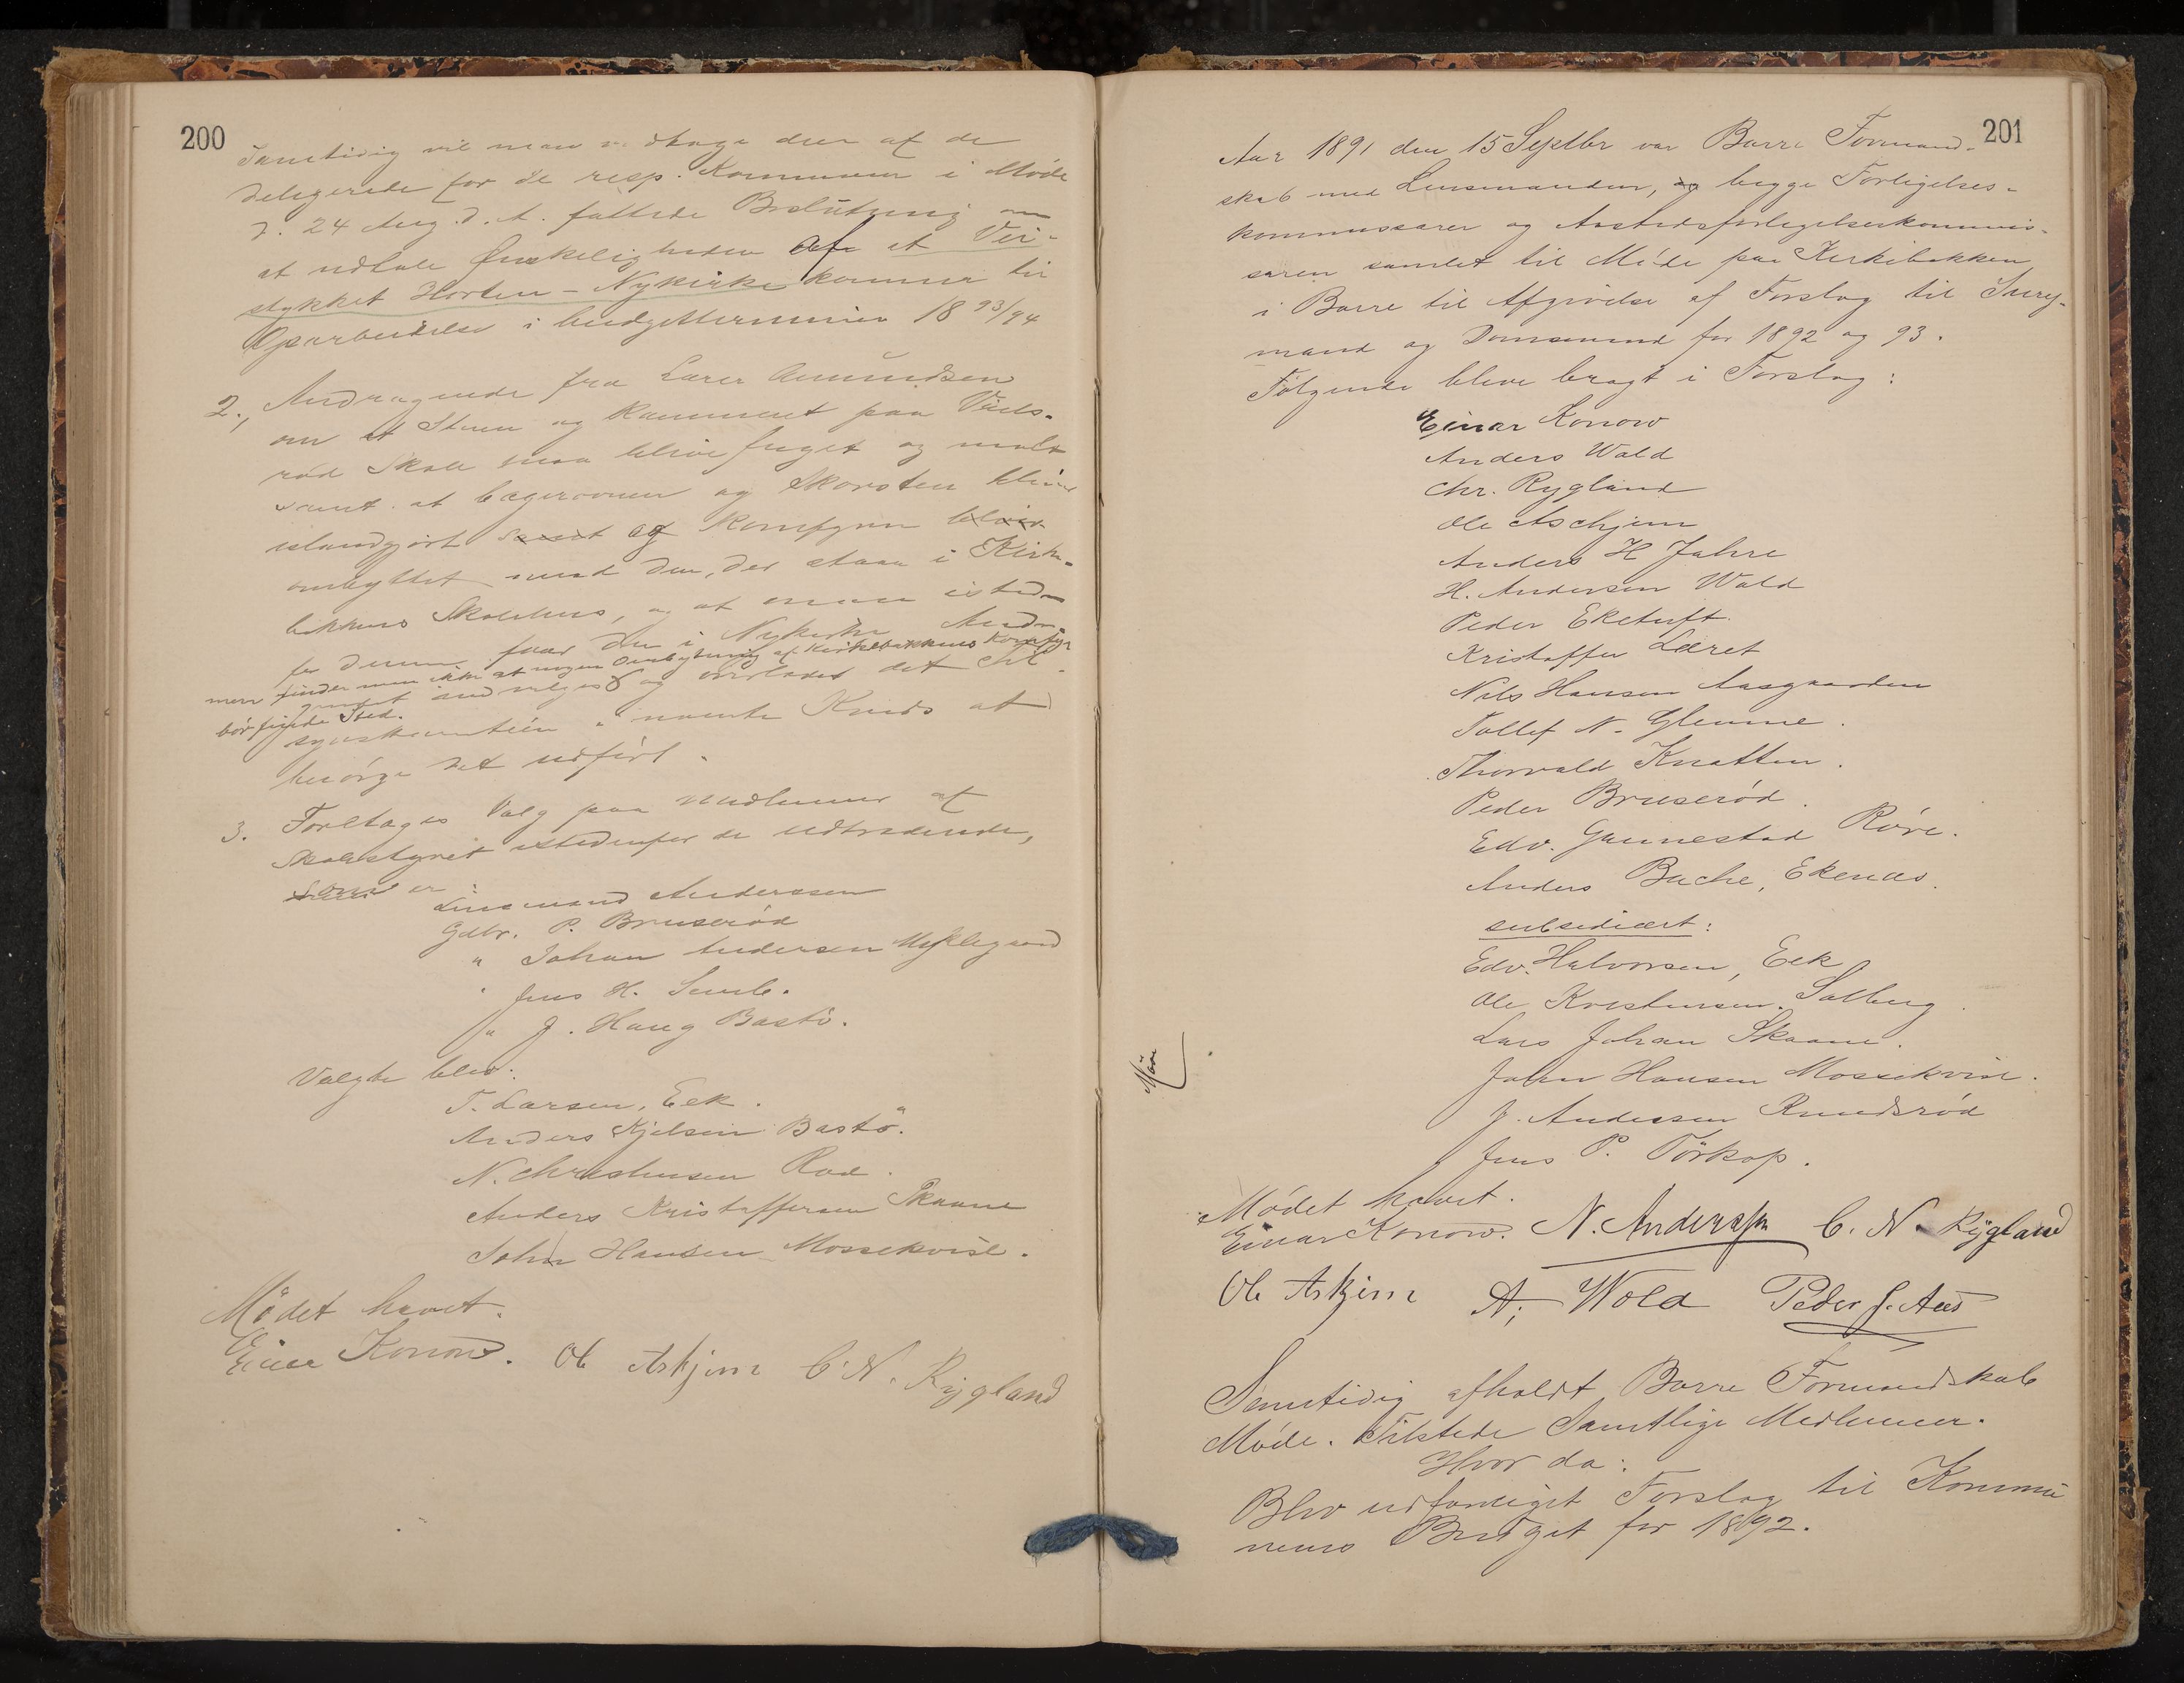 200
Samtidig vil man vedtage den af de
delegerede for de resp. Kommuner i Møde
d. 24 Aug. d. A. fattede Beslutning om
at udtale Ønskeligheden af at Vei-
stykket Horten - Nykirke kommer til
Oparbeidelse i budgetterminen 1893/94
2., Andragende fra Lærer Amundsen
om at Stuen og Kammeret paa Viels-
rød Skole maa blive fuget og malt
samt at bagerovnen og Skorsten blive
istandgjort samt og Komfyren bliver
ombyttet med den, der staar i Kirke-
bakkens Skolehus, og at man isteden-
for denne faar den i Nykirke. Andra-
men finder man ikke at nogen Ombytning af Kirkebakkens Komfyr
gendet indvilges og overlades det til
bør finde Sted.
synskomiteen i nævnte Kreds at
besørge det udført.
3. Foretages Valg paa Medlemmer af
Skolestyret istedenfor de udtrædende,
som er:
Lensmand Anderssen
Gdbr. P. Bruserød
" Johan Andersen Myklegaard
" Jens H. Semb.
" J. Haug Bastø.
Valgte blev:
T. Larsen, Eek.
Anders Kjelsen Bastø.
N. Christensen Rød.
Anders Kristoffersen Skaane
John Hansen Mossekvist.
Mødet hævet.
Einar Konow. Ole Askjem C. N. Rygland
201
Aar 1891 den 15 Septbr var Borre Formand-
skab med Lensmanden, og begge Forligelses-
kommissærer og Aastedsforligelseskommis-
særen samlet til Møde paa Kirkebakken
i Borre til Afgivelse af Forslag til Jury-
mænd og Domsmænd for 1892 og 93.
Følgende bleve bragt i Forslag:
Einar Konow
Anders Wold
Chr. Rygland
Ole Aschjem
Anders H Jahre
H. Andersen Wold
Peder Eketuft.
Kristoffer Læret
Nils Hansen Aasgaarden
Tollef N. Glenne.
Thorvald Knatten.
Peder Bruserød.
Edv. Gannestad Røre.
Anders Bache, Ekenæs.
subsidiært:
Edv. Halvorsen, Eek
Ole Kristensen Solberg.
Lars Johan Skaane.
John Hansen Mossekvist.
J. Anderssen Rundsrød
Jens P. Tørkop.
Mødet hævet.
Einar Konow. N. Anderssen C. N. Rygland
Ole Askjem A. Wold Peder J. Aas
Samtidig afholdt Borre Formandskab
Møde. Tilstede Samtlige Medlemmer.
Hvor da:
Blev udfærdiget Forslag til Kommu
nens Budget for 1892.